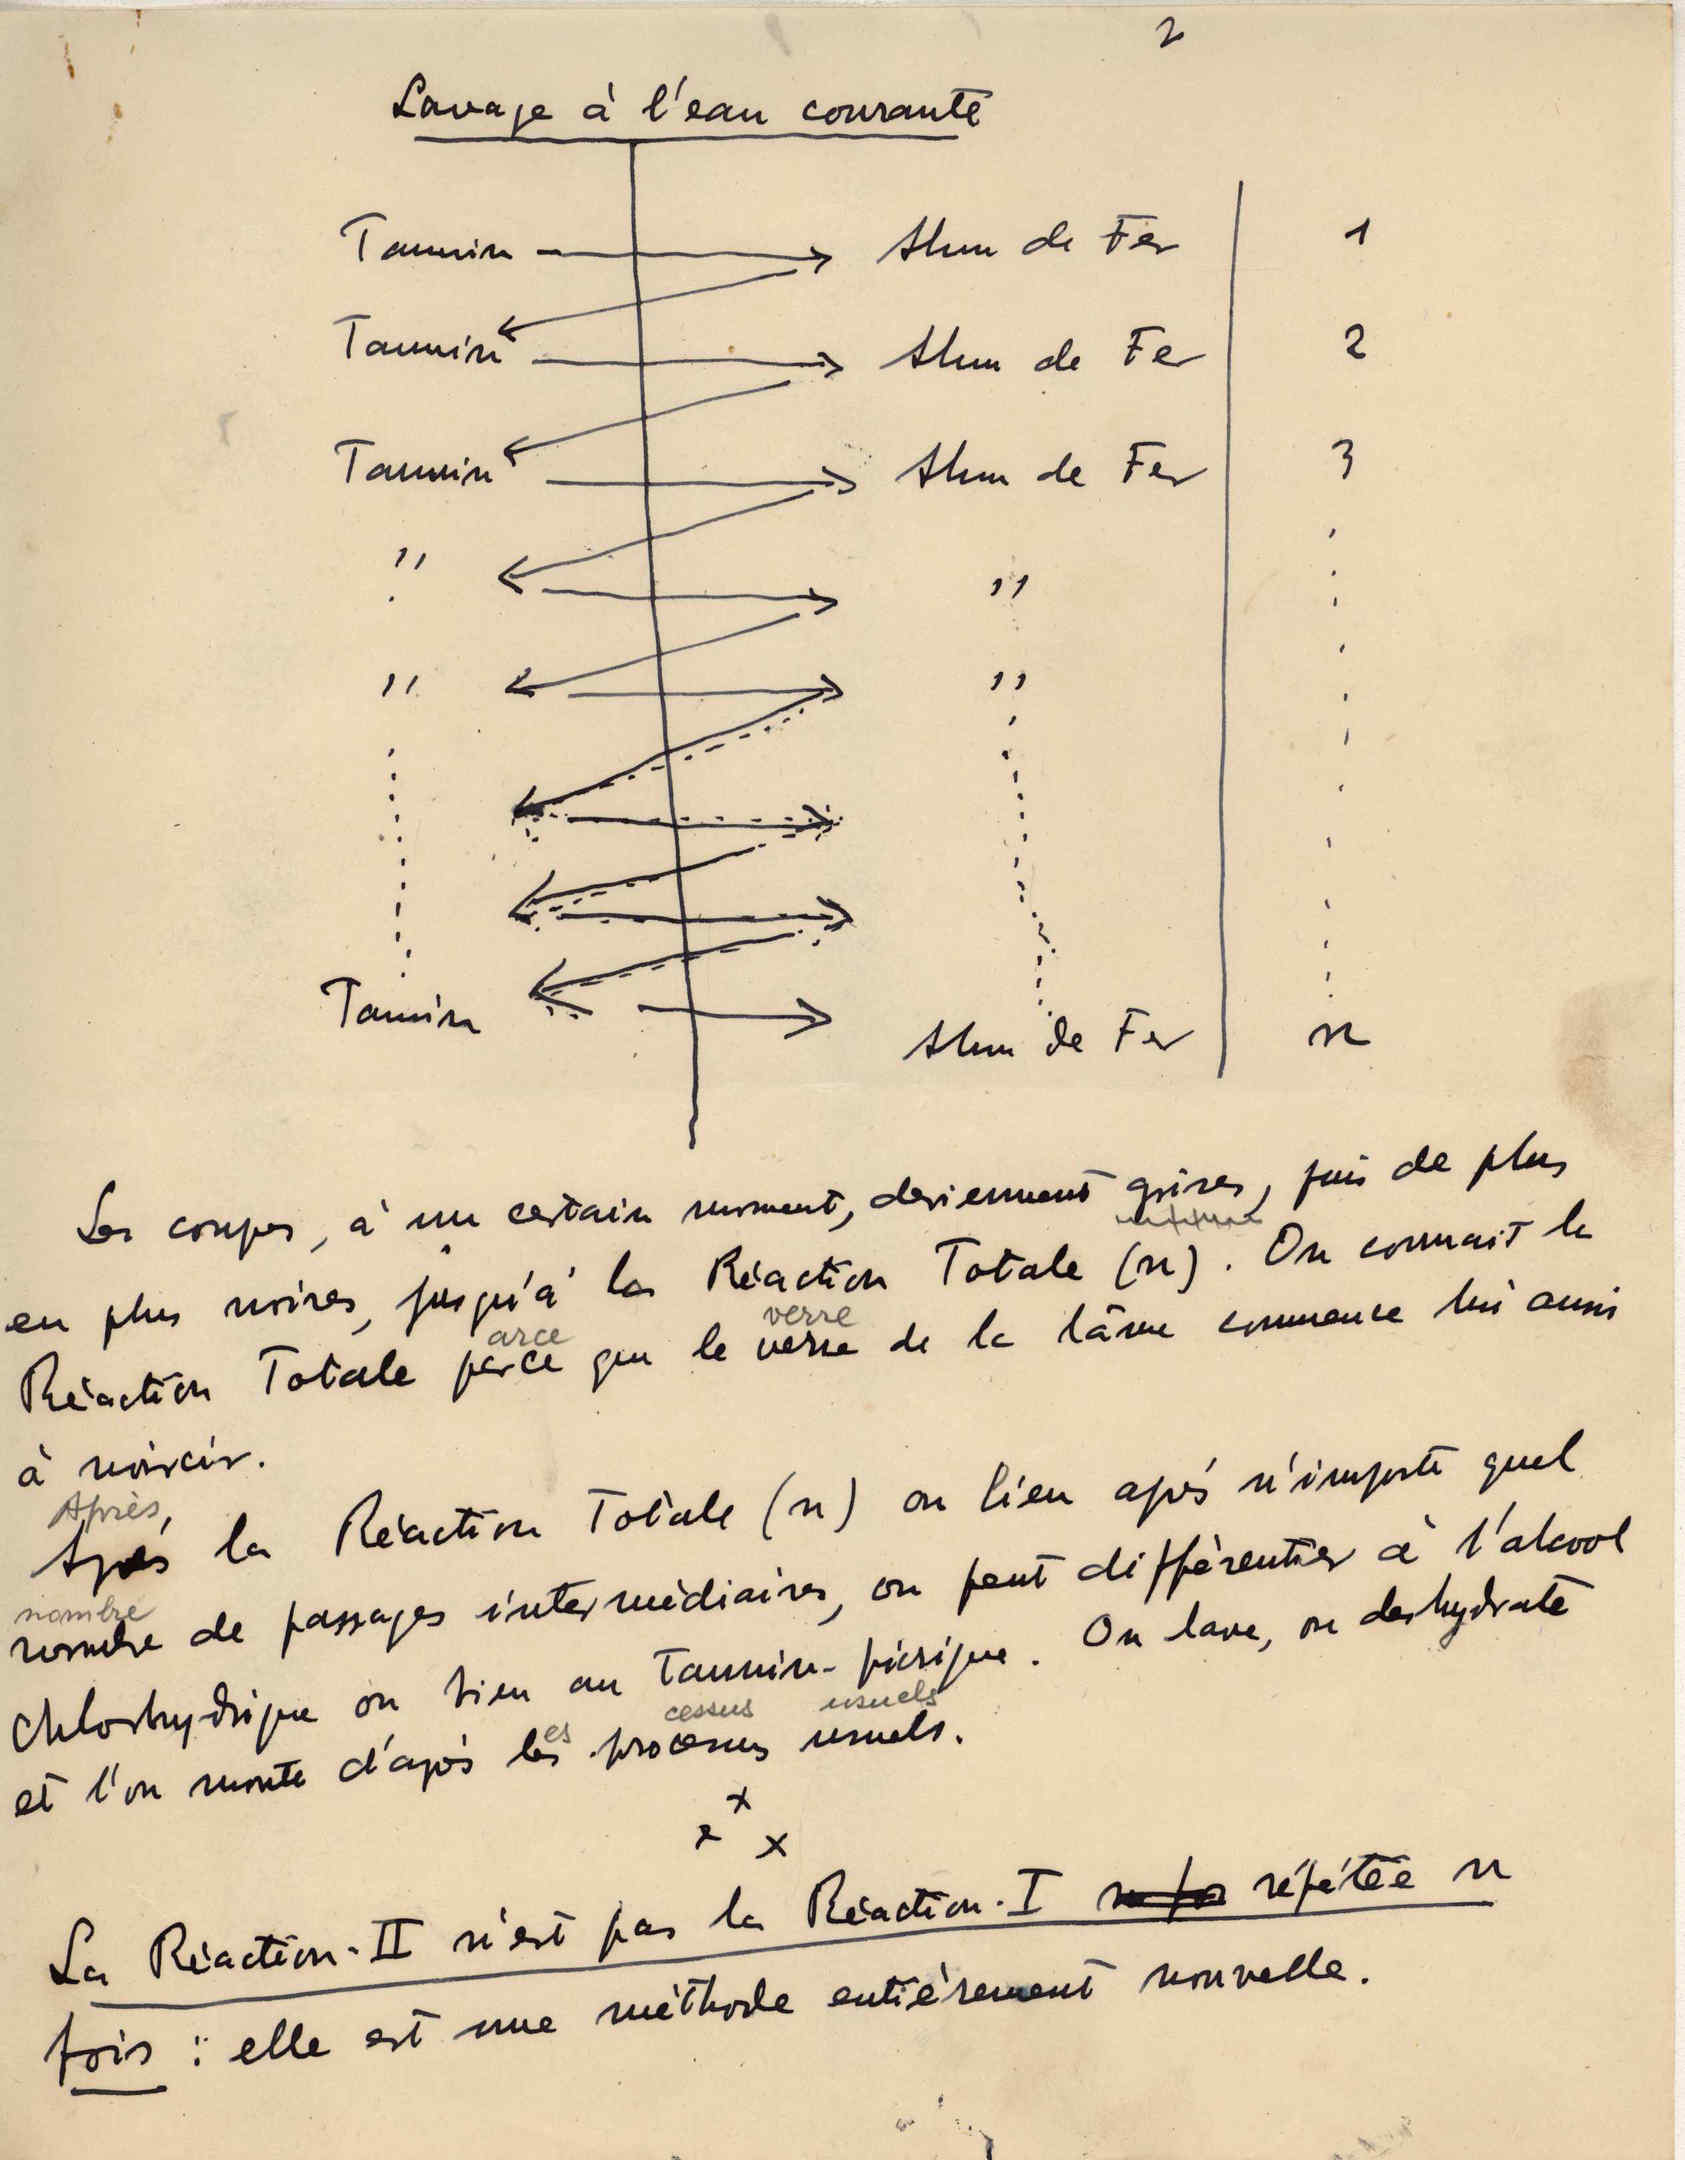 2
Lavage à l'eau courante
Tannin Alun de Fer 1
Tannin Alun de Fer 2
Tannin Alun de Fer 3
" "
" "
Tannin Alun de Fer n
Les coupes, à un certain moment, deviennent grises, puis de plus
en plus noires, jusqu'à la Réaction Totale (n). On connait la
arce verre
Réaction Totale parce que le verre de la lâme commence lui aussi
à noircir.
Après,
Après la Réaction Totale (n) ou bien après n'importe quel
nombre
nombre de passages intermédiaires, on peut différentier à l'alcool
Chlorhydrique ou bien au Tannin-picrique. On lave, on deshydrate
es cessus usuels
et l'on monte d'après les processus usuels.
x
x x
La Réaction-II n'est pas la Réaction-I répétée n
fois : elle est une méthode entièrement nouvelle.